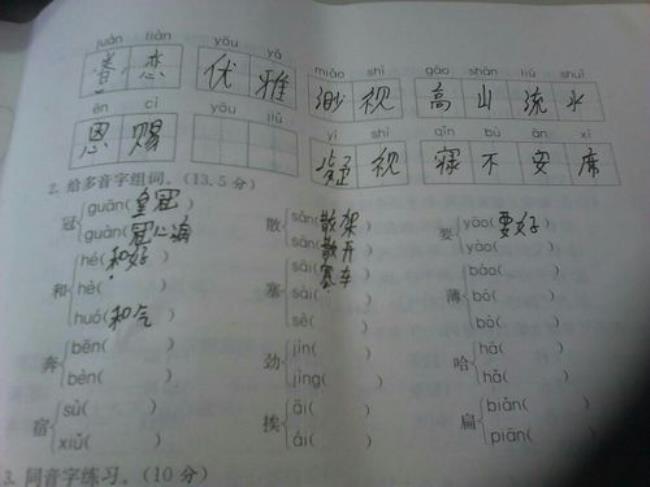 juàn liàn yōu yǎ miǎo shì gāo shān liú shuǐ
眷恋 优雅 渺视 高山流水
ēn cì yōu jiǔ yí shì qǐn bù ān xí
恩赐 凝视 寝不安席
2. 给多音字组词。(13.5 分)
冠 guān(皇冠) 散 sǎn(散架) 要 yāo(要好)
guàn(冠心病) sàn(散开) yào( )
和 hé(和好) 塞 sāi(塞车) 薄 báo( )
hè( ) sài( ) bó( )
huó(和气) sè( ) bò( )
奔 bēn( ) 劲 jìn( ) 哈 hā( )
bèn( ) jìng( ) hǎ( )
宿 sù( ) 挨 āi( ) 扁 biǎn( )
xiǔ( ) ái( ) piān( )
3. 同音字练习。(10 分)